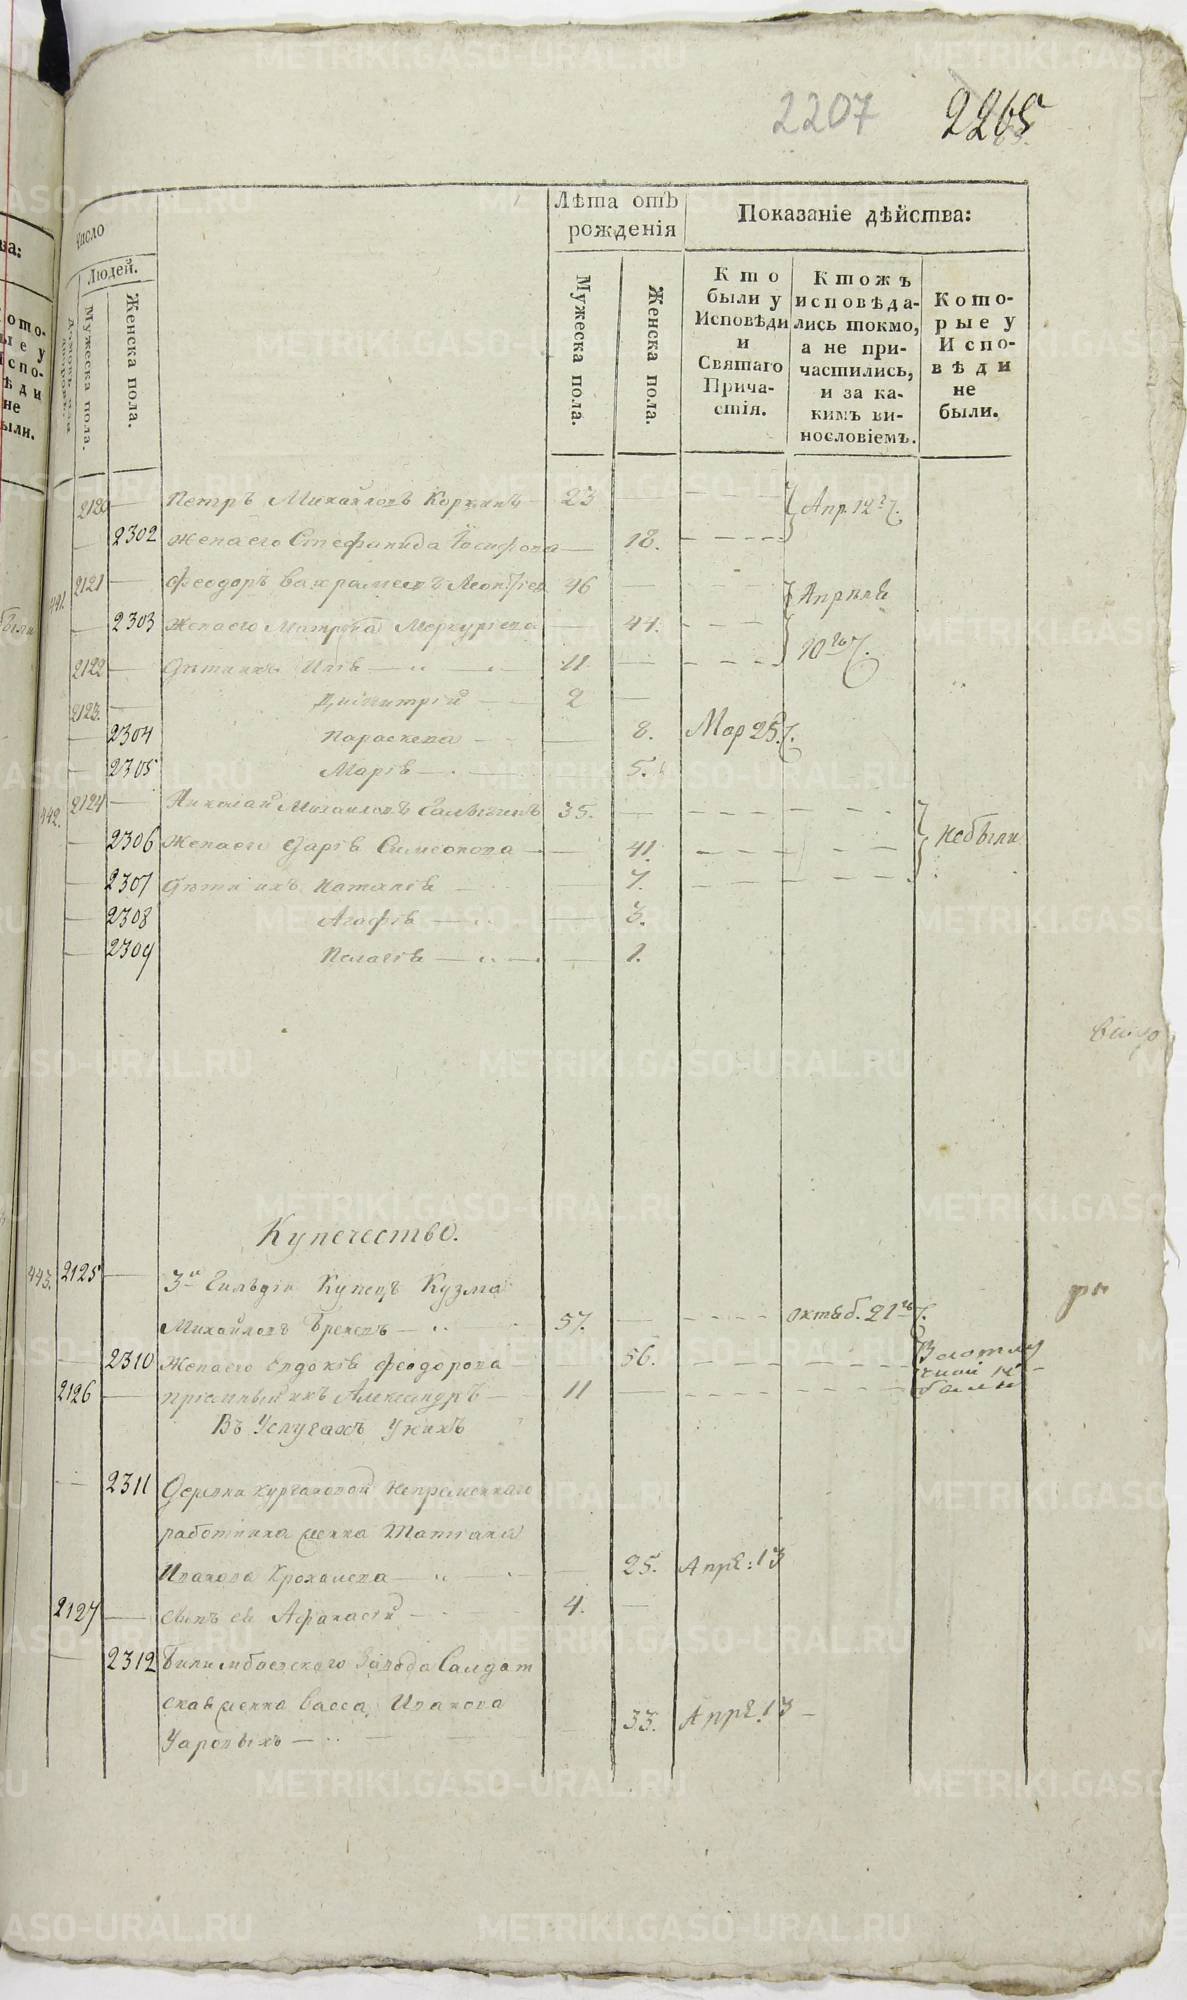 2207 2265
Число
Людей.
Мужеска пола.
Женска пола.
Лѣта отъ рожденія
Мужеска пола.
Женска пола.
Показаніе дѣйства:
Кто были у Исповѣди и Святаго Причастія.
Ктожъ исповѣдались токмо, а не причастились, и за какимъ винословіемъ.
Которые у Исповѣди не были.
2120 — Петръ Михайловъ Коркинъ — 23
Апр. 12
2302 жена его Стефанида Іосифова — 18.
441. 2121 — Феодоръ Вахрамеевъ Леонтіев 46
Апрѣля
2303 жена его Матрона Меркуріева 44.
2122 — дѣти ихъ Илія — 11.
10
2123. — Димитрій — 2 —
2304 Параскева — 8. Мар 25.
2305 Марія — 5.
442. 2124 — Николай Михайловъ 35. —
не были
2306 жена его Дарія Симеонова — 41.
2307 дѣти ихъ Наталія — 7.
2308 Агафія — 3.
2309 Пелагія — 1.
Купечество.
443. 2125 — 3й Гильдіи Купецъ Кузма
Михайловъ — 57. — октяб. 21
2310 жена его Евдокія Феодорова 56.
2126 — пріемный ихъ Александръ — 11 —
были
Въ Услугахъ у нихъ
2311 деревни Кургановой непременнаго
работника женка Татіана
Иванова — 25. Апрѣ: 13
2127 — сынъ ея Афанасій — 4. —
2312 Билимбаевскаго Завода Салдат
ская женка Васса Иванова 33. Апрѣ. 13 —
Уаровыхъ —
METRIKI.GASO-URAL.RU